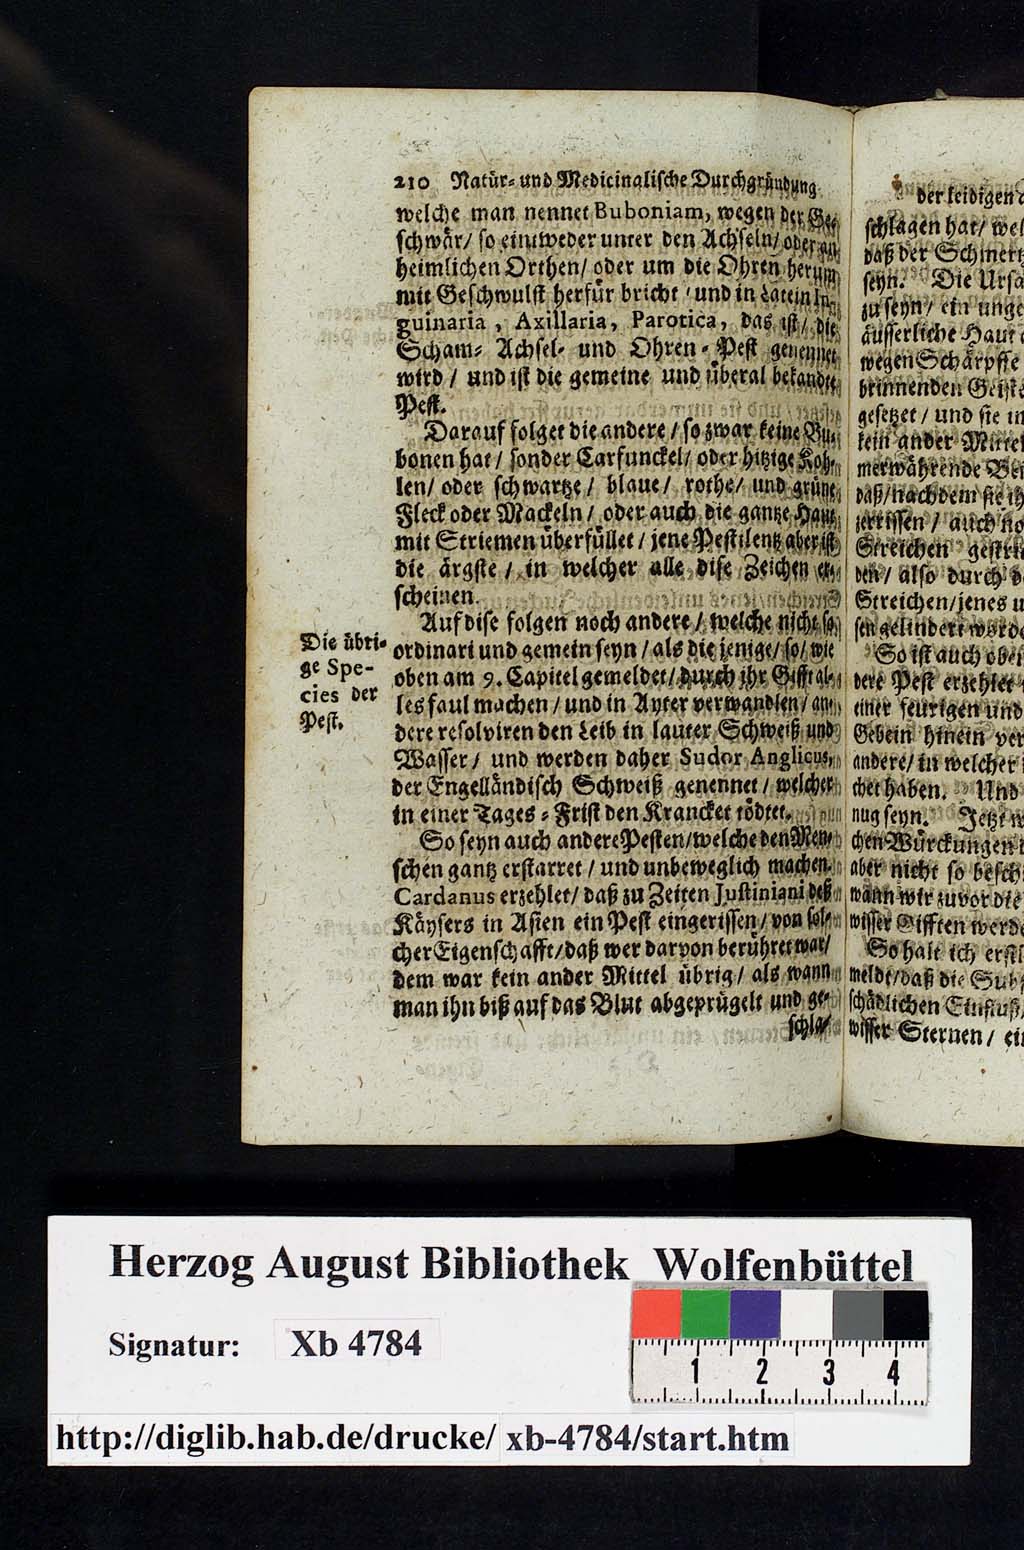 210 Natür- und Medicinalische Durchgründung
welche man nennet Buboniam, wegen der Ge-
schwär/ so eintweder unter den Achseln/ oder an
heimlichen Orthen/ oder um die Ohren herum
mit Geschwulst herfür bricht / und in Latein In-
guinaria, Axillaria, Parotica, das ist/ die
Scham- Achsel- und Ohren-Pest genennet
wird / und ist die gemeine und überal bekandte
Pest.
Darauf folget die andere / so zwar keine Bu-
bonen hat / sonder Carfunckel/ oder hitzige Koh-
len/ oder schwartze / blaue / rothe / und grüne
Fleck oder Mackeln / oder auch die gantze Haut
mit Striemen überfüllet / jene Pestilentz aber ist
die ärgste / in welcher alle dise Zeichen er-
scheinen.
Auf dise folgen noch andere / welche nicht so
ordinari und gemein seyn / als die jenige/ so/ wie
oben am 9. Capitel gemeldet/ durch ihr Gifft al-
les faul machen / und in Ayter verwandlen / an-
dere resolviren den Leib in lauter Schweiß und
Wasser / und werden daher Sudor Anglicus,
der Engelländisch Schweiß genennet / welcher
in einer Tages-Frist den Krancket tödtet.
So seyn auch andere Pesten/ welche den Men-
schen gantz erstarret / und unbeweglich machen.
Cardanus erzehlet/ daß zu Zeiten Justiniani deß
Käysers in Asien ein Pest eingerissen / von sol-
cher Eigenschafft/ daß wer darvon berühret war/
dem war kein ander Mittel übrig / als wann
man ihn biß auf das Blut abgeprügelt und ge-
schla-
Die übri-
ge Spe-
cies der
Pest.
der leidigen
schlagen hat/ wel
daß der Schmertz
seyn. Die Ursa
zu seyn / ein unge
äusserliche Haut
wegen Schärpffe
brinnenden Geiste
gesetzet / und sie in
kein ander Mittel
merwährende Be
daß/ nachdem sie ih
zerrissen / auch no
Streichen gestri
den / also durch d
Streichen/ jenes u
sen gelindert worde
So ist auch oben
dere Pest erzehlet
einer feurigen und
Gebein hinein ver
andere/ in welcher
chet haben. Und
nug seyn. Jetzt w
chen Würckungen
aber nicht so besch
wann wir zuvor die
wisser Gifften werde
So halt ich erstl
meldt/ daß die Subs
schädlichen Einfluß/
wisser Sternen / ein
Herzog August Bibliothek Wolfenbüttel
Signatur: Xb 4784
1 2 3 4
http://diglib.hab.de/drucke/ xb-4784/start.htm